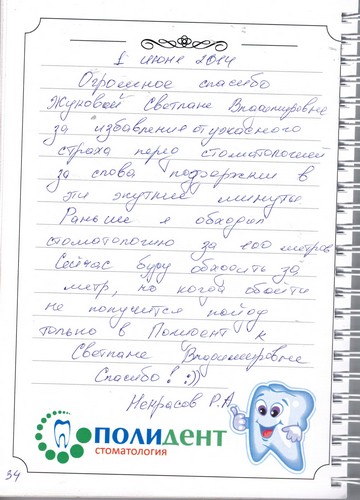 1 июня 2014
Огромное спасибо
Жуковой Светлане Владимировне
за избавление от ужасного
страха перед стоматологией
за слова поддержки в
эти жуткие минуты
Раньше я обходил
стоматологию за 100 метров
Сейчас буду обходить за
метр, но когда обойти
не получится пойду
только в Полидент к
Светлане Владимировне
Спасибо! :))
Некрасов Р.А
ПОЛИДЕНТ
СТОМАТОЛОГИЯ
34